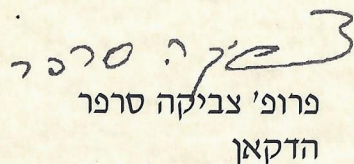 צביקה סרפר
פרופ' צביקה סרפר
הדקאן